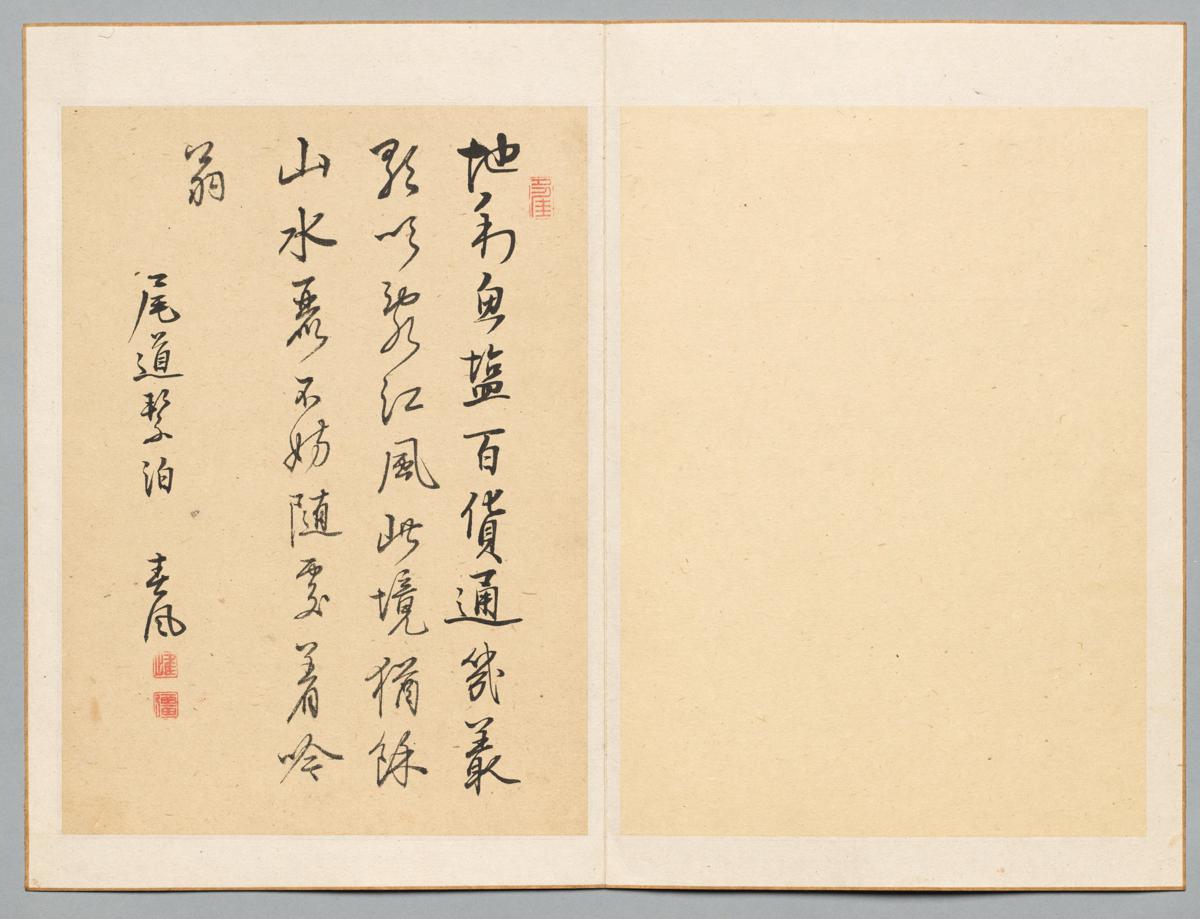 地利魚塩百貨通幾叢
歌吹江風此境猶餘
山水麗不妨随處着吟
翁
尾道繫泊 春風